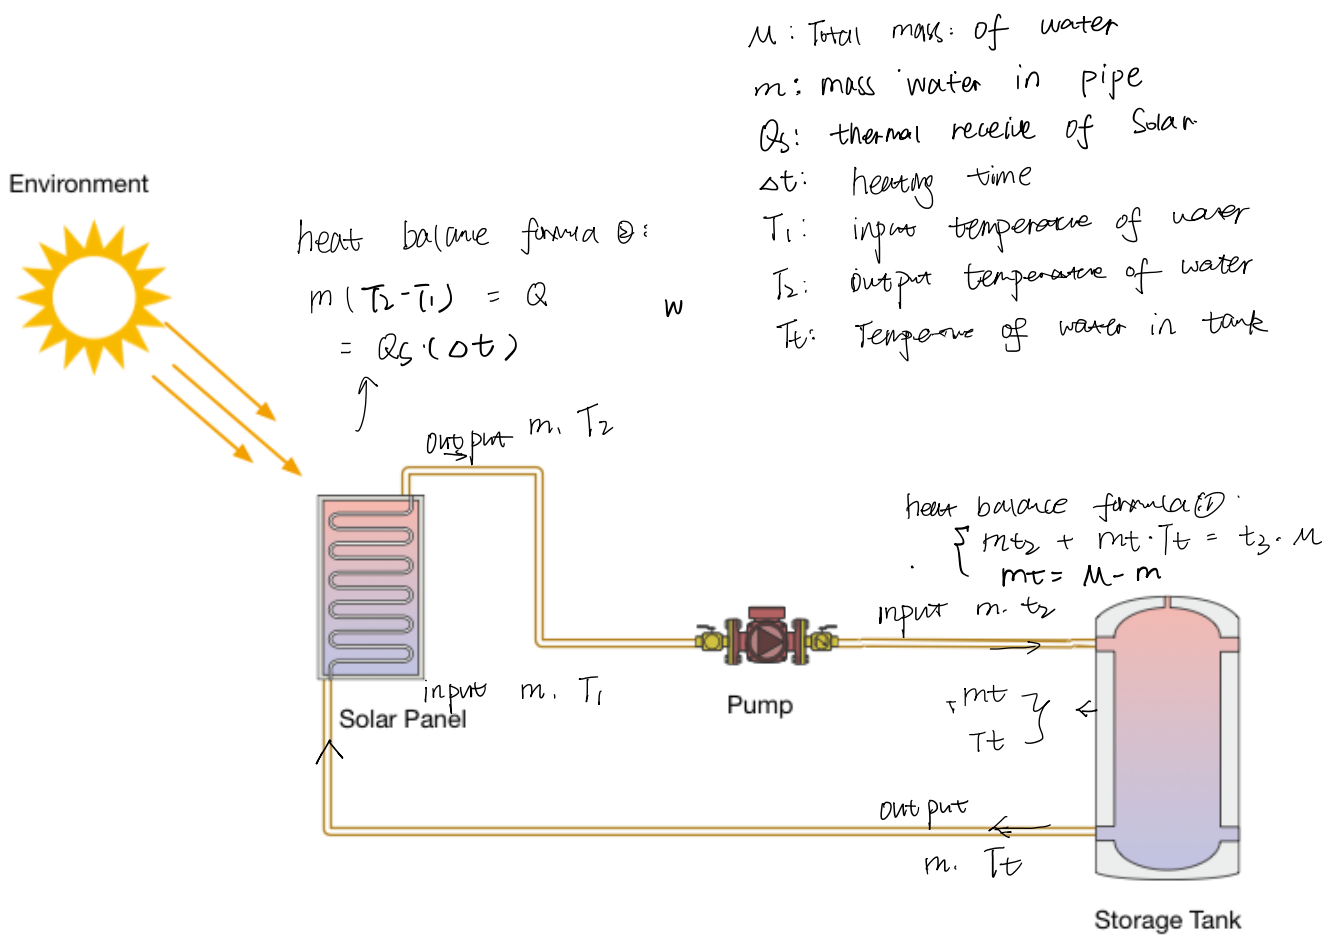 M: Total mass of water
m: mass water in pipe
Qs: thermal receive of Solar
Δt: heating time
T1: input temperature of water
T2: output temperature of water
Tt: Temperture of water in tank
Environment
heat balance formula ②:
m(T2-T1) = Q
= Qs·(Δt)
w
output m. T2
heat balance formula ①
mt2 + mt·Tt = t3·M
mt = M-m
input m. t2
input m. T1
Solar Panel
Pump
mt
Tt
output
m. Tt
Storage Tank